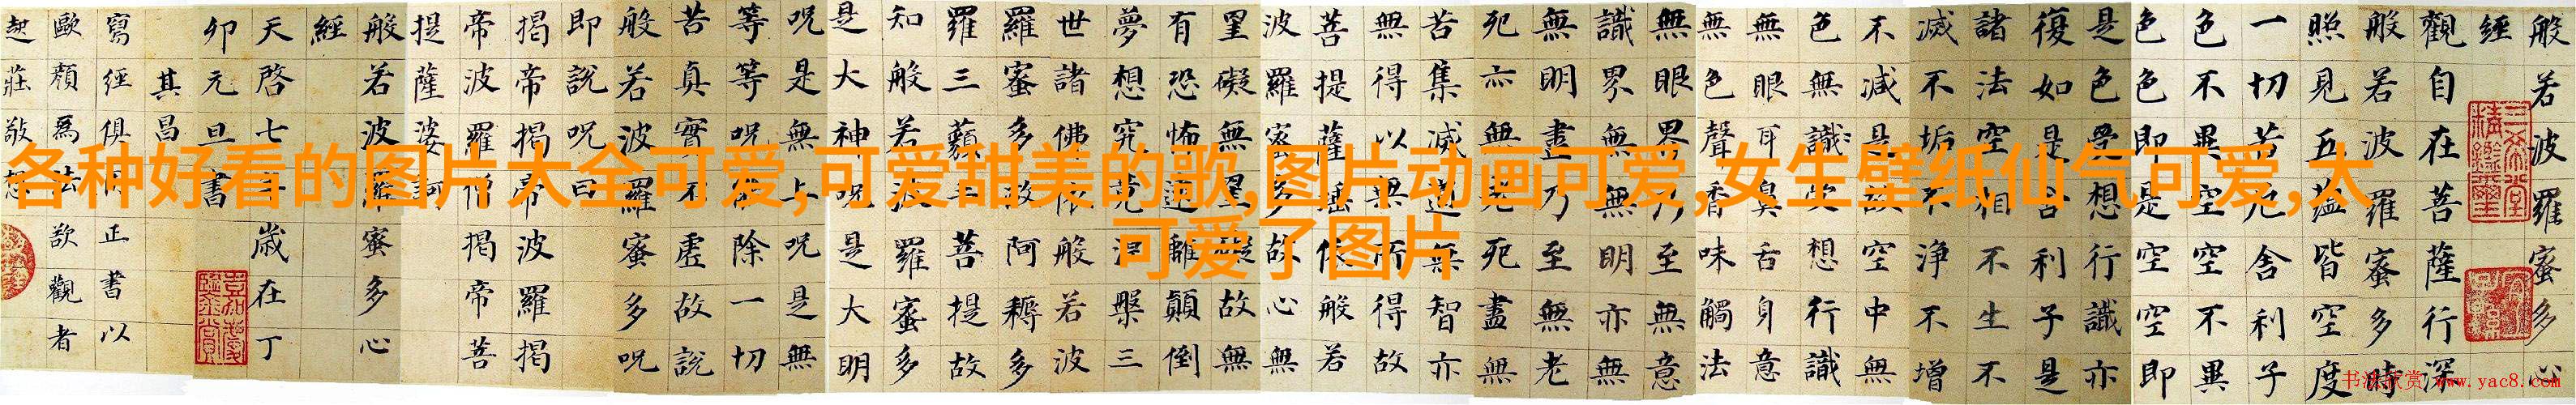 各种好看的图片大全可爱,可爱甜美的歌,图片动画可爱,女生壁纸仙气可爱,太
可爱了图片
般若波羅蜜多心
經
觀自在菩薩行深
般若波羅蜜多時
照見五蘊皆空度
一切苦厄舍利子
色不異空空不異
色色即是空空即
是色受想行識亦
復如是舍利子是
諸法空相不生不
滅不垢不淨不增
不減是故空中無
色無識受想行識
無眼耳鼻舌身意
無色聲香味觸法
無眼界乃至無意
識界無無明亦無
無明盡乃至無老
死亦無老死盡無
苦集滅道無智亦
無得以無所得故
菩提薩埵依般若
波羅蜜多故心無
罣礙無罣礙故無
有恐怖遠離顛倒
夢想究竟涅槃三
世諸佛依般若波
羅蜜多故阿耨多
羅三藐三菩提故
知般若波羅蜜多
是大神呪是大明
呪是無上呪是無
等等呪能除一切
苦真實不虛故說
般若波羅蜜多呪
即說呪曰
揭帝揭帝波羅揭
帝波羅僧揭帝菩
提薩婆訶
般若波羅蜜多心
經
天啓七年歲在丁
卯元旦書
其昌
寫經俱用正書以
歐顏為法欲觀者
起莊敬想
书法欣赏 www.yac8.com